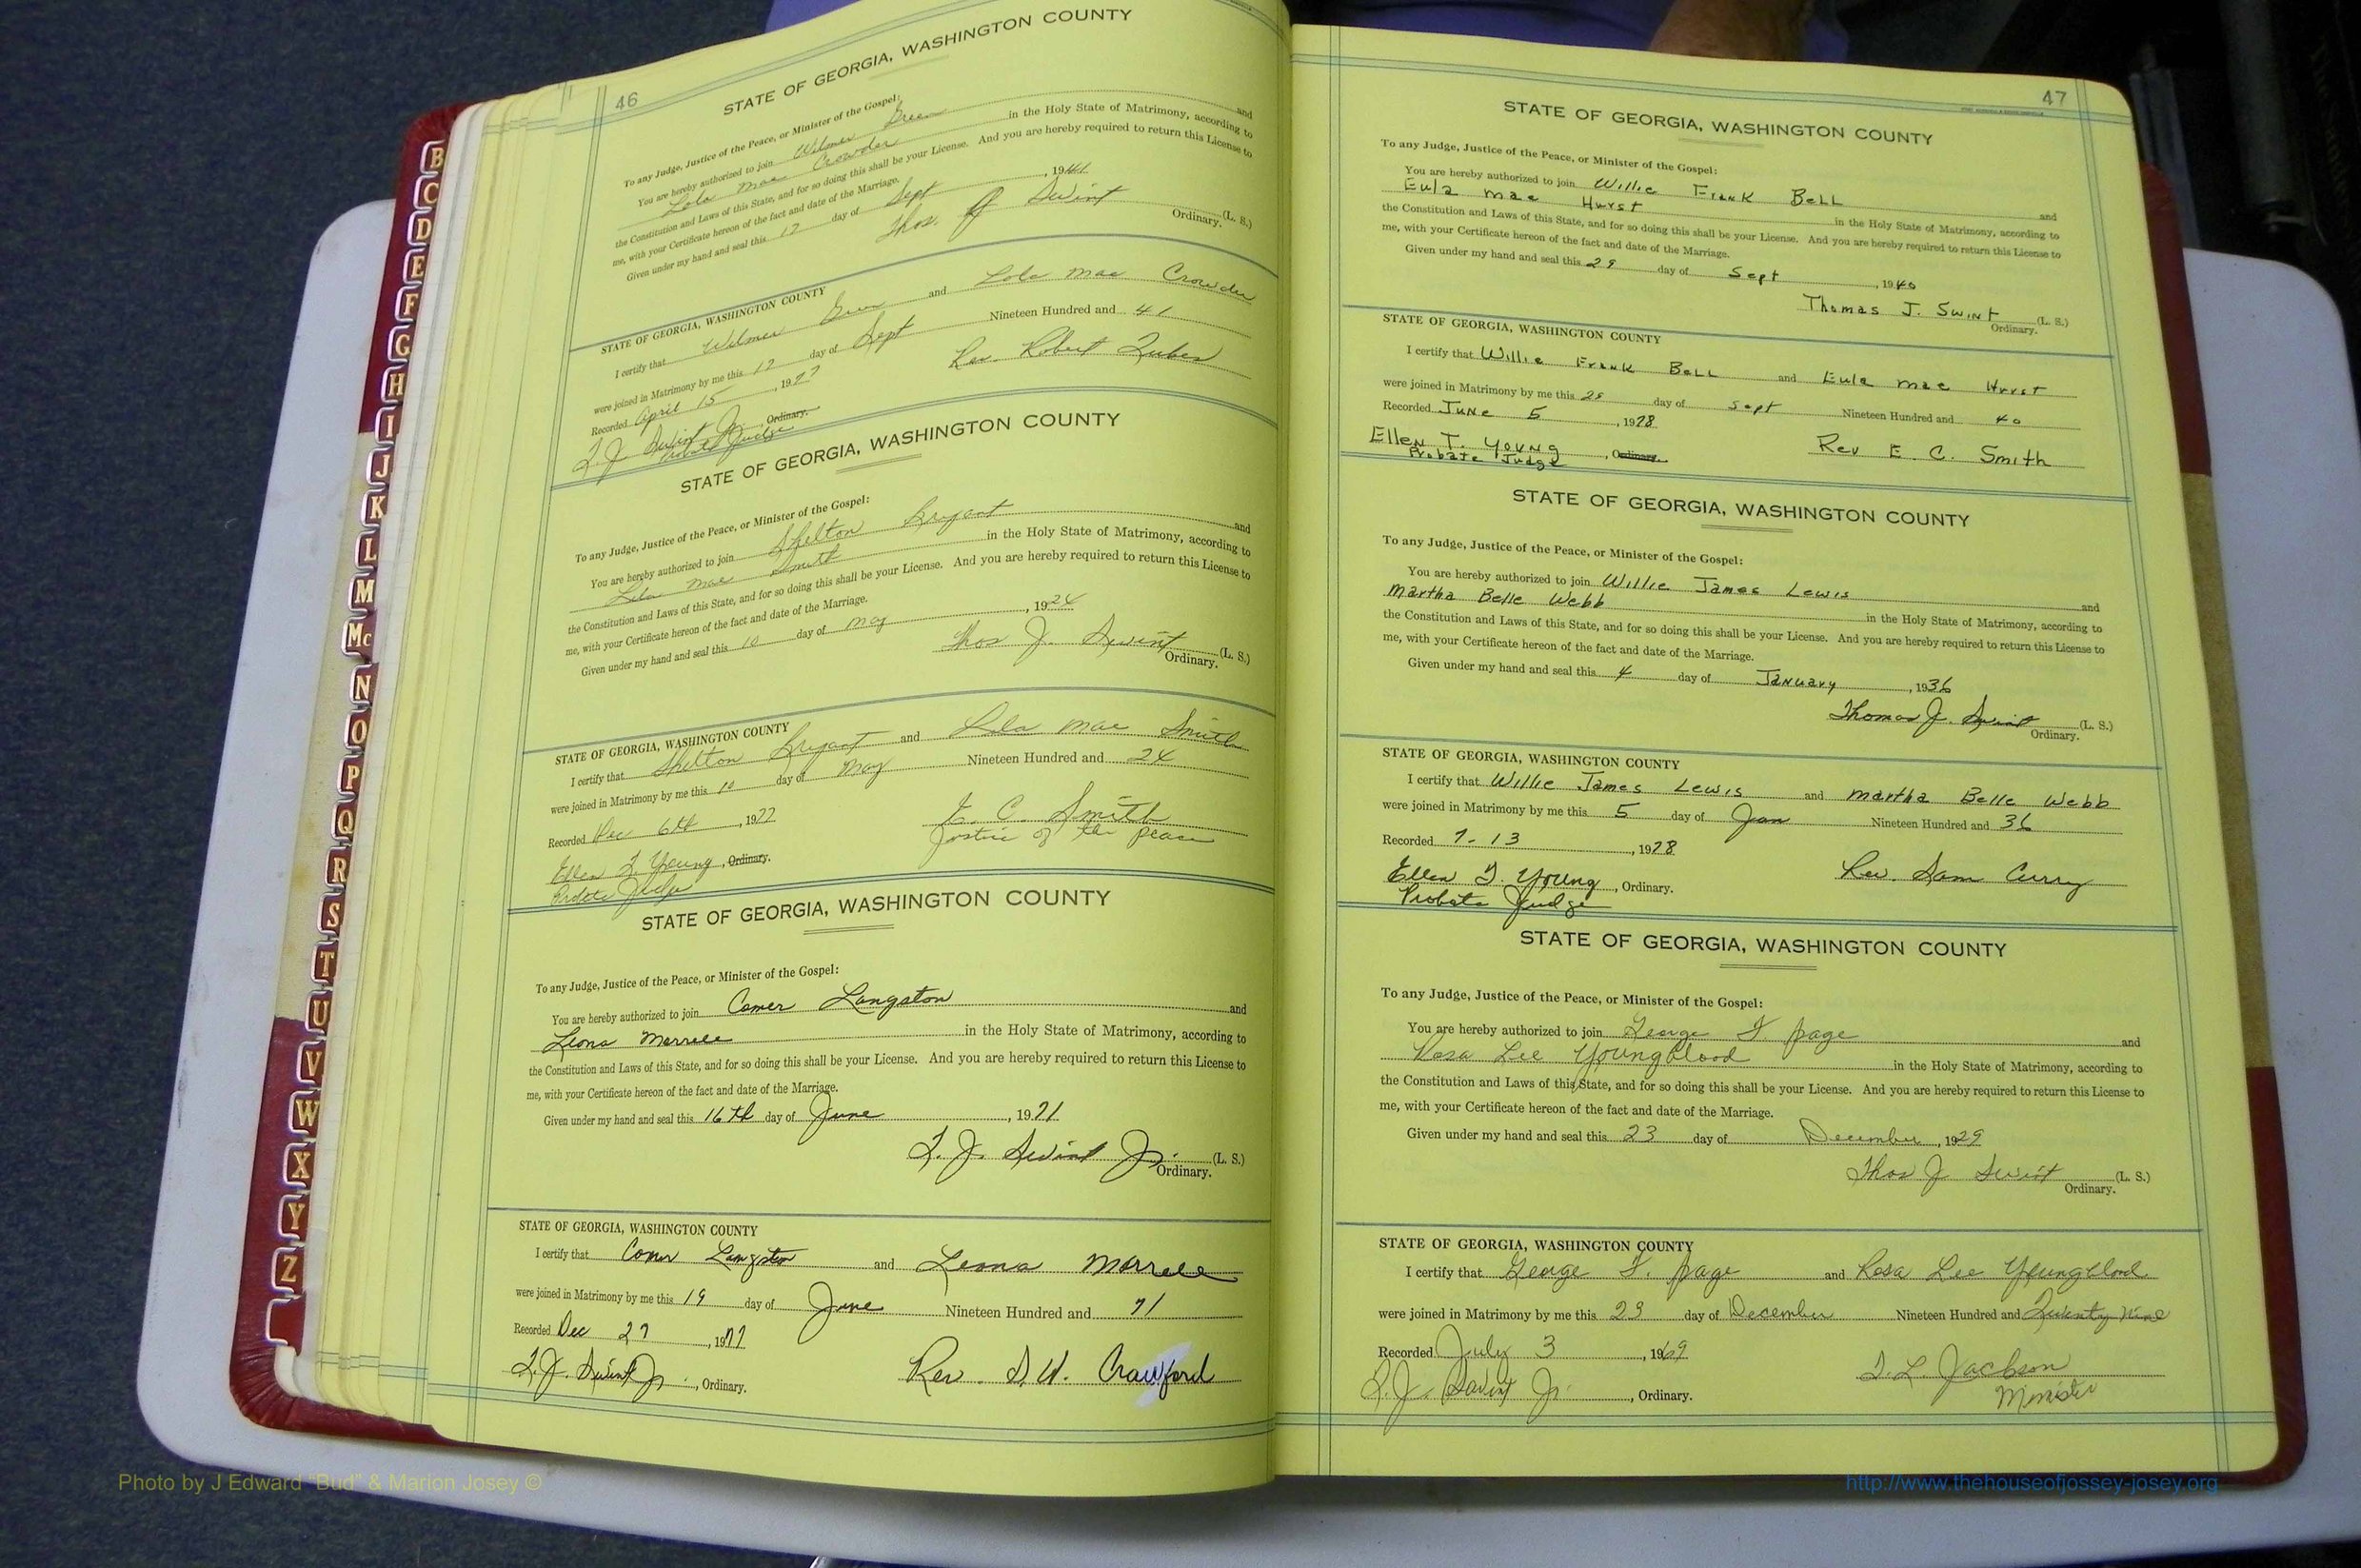 46
STATE OF GEORGIA, WASHINGTON COUNTY
To any Judge, Justice of the Peace, or Minister of the Gospel:
You are hereby authorized to join Wilmer and
Lola mae Crowder in the Holy State of Matrimony, according to
the Constitution and Laws of this State, and for so doing this shall be your License. And you are hereby required to return this License to
me, with your Certificate hereon of the fact and date of the Marriage.
Given under my hand and seal this 17 day of Sept , 1941
Thos. J Swint (L. S.)
Ordinary.
STATE OF GEORGIA, WASHINGTON COUNTY
I certify that Wilmer and Lola mae Crowder
were joined in Matrimony by me this 17 day of Sept Nineteen Hundred and 41
Recorded April 15 , 1977
Rev. Robert
T. J Swint Jr. , Ordinary.
Probate Judge
STATE OF GEORGIA, WASHINGTON COUNTY
To any Judge, Justice of the Peace, or Minister of the Gospel:
You are hereby authorized to join Shelton Bryant and
Lila mae Smith in the Holy State of Matrimony, according to
the Constitution and Laws of this State, and for so doing this shall be your License. And you are hereby required to return this License to
me, with your Certificate hereon of the fact and date of the Marriage.
Given under my hand and seal this 10 day of may , 1924
Thos J. Swint (L. S.)
Ordinary.
STATE OF GEORGIA, WASHINGTON COUNTY
I certify that Shelton Bryant and Lila mae Smith
were joined in Matrimony by me this 10 day of May Nineteen Hundred and 24
Recorded Dec 6th , 1977
E. C. Smith
Justice of the Peace
Ellen T. Young , Ordinary.
Probate Judge
STATE OF GEORGIA, WASHINGTON COUNTY
To any Judge, Justice of the Peace, or Minister of the Gospel:
You are hereby authorized to join Comer Langston and
Leona Morrell in the Holy State of Matrimony, according to
the Constitution and Laws of this State, and for so doing this shall be your License. And you are hereby required to return this License to
me, with your Certificate hereon of the fact and date of the Marriage.
Given under my hand and seal this 16th day of June , 1971
T. J. Swint Jr. (L. S.)
Ordinary.
STATE OF GEORGIA, WASHINGTON COUNTY
I certify that Comer Langston and Leona Morrell
were joined in Matrimony by me this 19 day of June Nineteen Hundred and 71
Recorded Dec 27 , 1971
T. J. Swint Jr. , Ordinary.
Rev. S. W. Crawford
47
STATE OF GEORGIA, WASHINGTON COUNTY
To any Judge, Justice of the Peace, or Minister of the Gospel:
You are hereby authorized to join Willie Frank Bell and
Eula mae Hurst in the Holy State of Matrimony, according to
the Constitution and Laws of this State, and for so doing this shall be your License. And you are hereby required to return this License to
me, with your Certificate hereon of the fact and date of the Marriage.
Given under my hand and seal this 29 day of Sept , 1940
Thomas J. Swint (L. S.)
Ordinary.
STATE OF GEORGIA, WASHINGTON COUNTY
I certify that Willie Frank Bell and Eula mae Hurst
were joined in Matrimony by me this 29 day of Sept Nineteen Hundred and 40
Recorded June 5 , 1978
Ellen T. Young , Ordinary.
Probate Judge
Rev E. C. Smith
STATE OF GEORGIA, WASHINGTON COUNTY
To any Judge, Justice of the Peace, or Minister of the Gospel:
You are hereby authorized to join Willie James Lewis and
martha Belle Webb in the Holy State of Matrimony, according to
the Constitution and Laws of this State, and for so doing this shall be your License. And you are hereby required to return this License to
me, with your Certificate hereon of the fact and date of the Marriage.
Given under my hand and seal this 4 day of January , 1936
Thomas J. Swint (L. S.)
Ordinary.
STATE OF GEORGIA, WASHINGTON COUNTY
I certify that Willie James Lewis and martha Belle Webb
were joined in Matrimony by me this 5 day of Jan Nineteen Hundred and 36
Recorded 7-13 , 1978
Ellen T. Young , Ordinary.
Probate Judge
Rev. Sam Curry
STATE OF GEORGIA, WASHINGTON COUNTY
To any Judge, Justice of the Peace, or Minister of the Gospel:
You are hereby authorized to join George F Page and
Rosa Lee Youngblood in the Holy State of Matrimony, according to
the Constitution and Laws of this State, and for so doing this shall be your License. And you are hereby required to return this License to
me, with your Certificate hereon of the fact and date of the Marriage.
Given under my hand and seal this 23 day of December , 1929
Thos J Swint (L. S.)
Ordinary.
STATE OF GEORGIA, WASHINGTON COUNTY
I certify that George F. Page and Rosa Lee Youngblood
were joined in Matrimony by me this 23 day of December Nineteen Hundred and Twenty Nine
Recorded July 3 , 1969
T. J. Swint Jr. , Ordinary.
T. L. Jackson
Minister
B
C
D
E
F
G
H
I
J
K
L
M
Mc
N
O
P
Q
R
S
T
U
V
W
X
Y
Z
Photo by J Edward "Bud" & Marion Josey ©
http://www.thehouseofjossey-josey.org